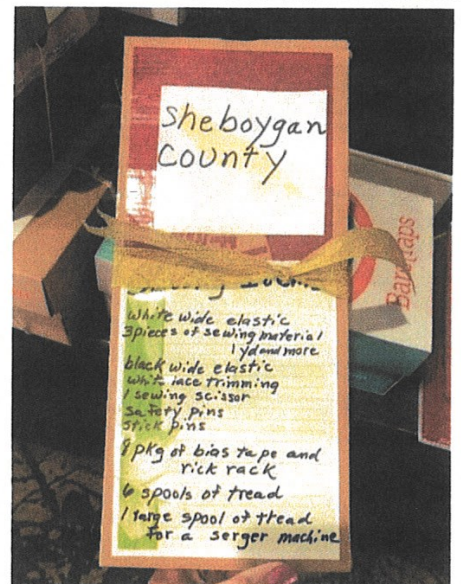 Sheboygan
County
white wide elastic
3 pieces of sewing material
1 yd and more
black wide elastic
white lace trimming
1 sewing scissor
safety pins
stick pins
pkg of bias tape and
rick rack
6 spools of tread
1 large spool of tread
for a serger machine